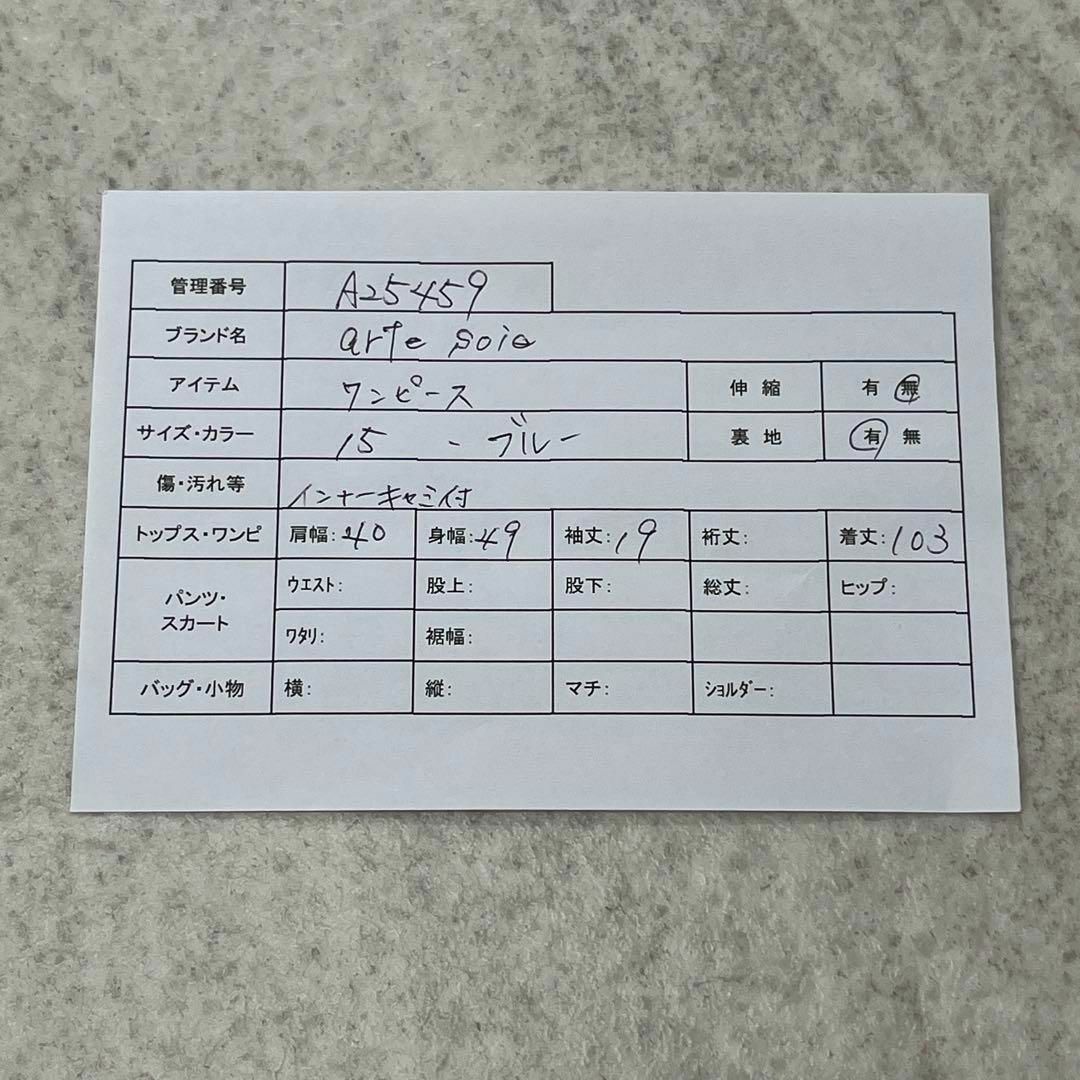 管理番号 A25459
ブランド名 arte soie
アイテム ワンピース 伸縮 有 無
サイズ・カラー 15 - ブルー 裏地 有 無
傷・汚れ等 インナーキャミ付
トップス・ワンピ 肩幅:40 身幅:49 袖丈:19 裄丈: 着丈:103
パンツ・スカート ウエスト: 股上: 股下: 総丈: ヒップ:
ワタリ: 裾幅:
バッグ・小物 横: 縦: マチ: ショルダー: